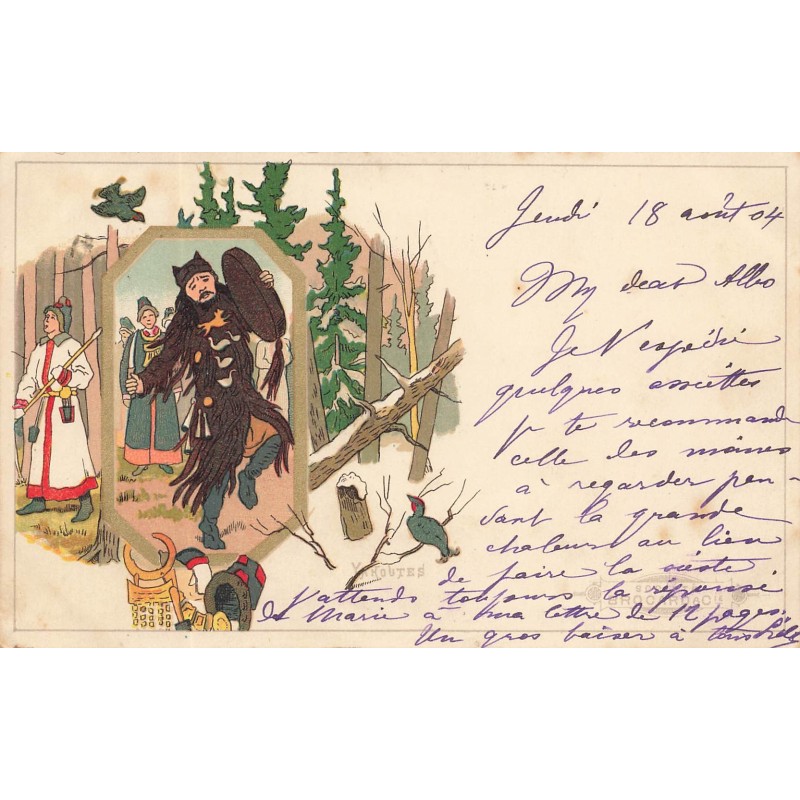 Jeudi 18 août 04
My dear Albo
Je t'expédie
quelques assiettes
je te recommande
celle des moines
à regarder pen-
dant la grande
chaleur au lieu
de faire la sieste
J'attends toujours la réponse
de Marie à ma lettre de 12 pages.
Un gros baiser à tous
YAKOUTES
BROCARD & Cie